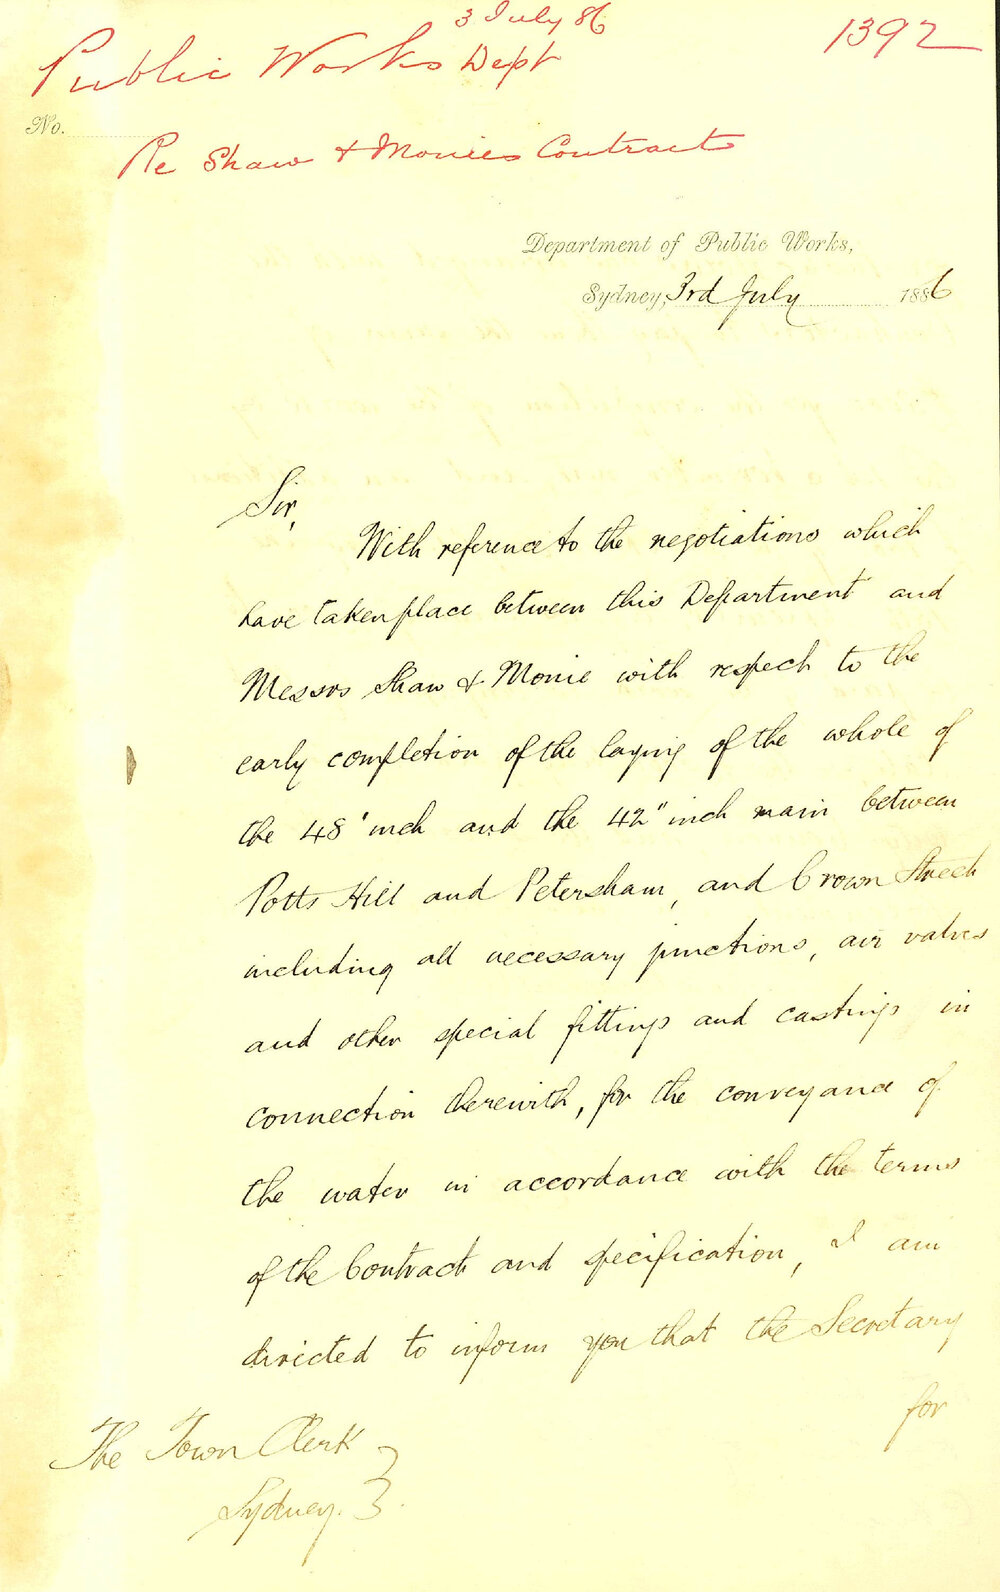 3 July 86
Public Works Dept
1392
No.
Re Shaw & Monies Contract
Department of Public Works,
Sydney, 3rd July 1886
Sir,
With reference to the negotiations which
have taken place between this Department and
Messrs Shaw & Monie with respect to the
early completion of the laying of the whole of
the 48 "inch and the 42" inch main between
Potts Hill and Petersham, and Crown Street
including all necessary junctions, air valves
and other special fittings and castings in
connection therewith, for the conveyance of
the water in accordance with the terms
of the Contract and specification, I am
directed to inform you that the Secretary
for
The Town Clerk
Sydney.